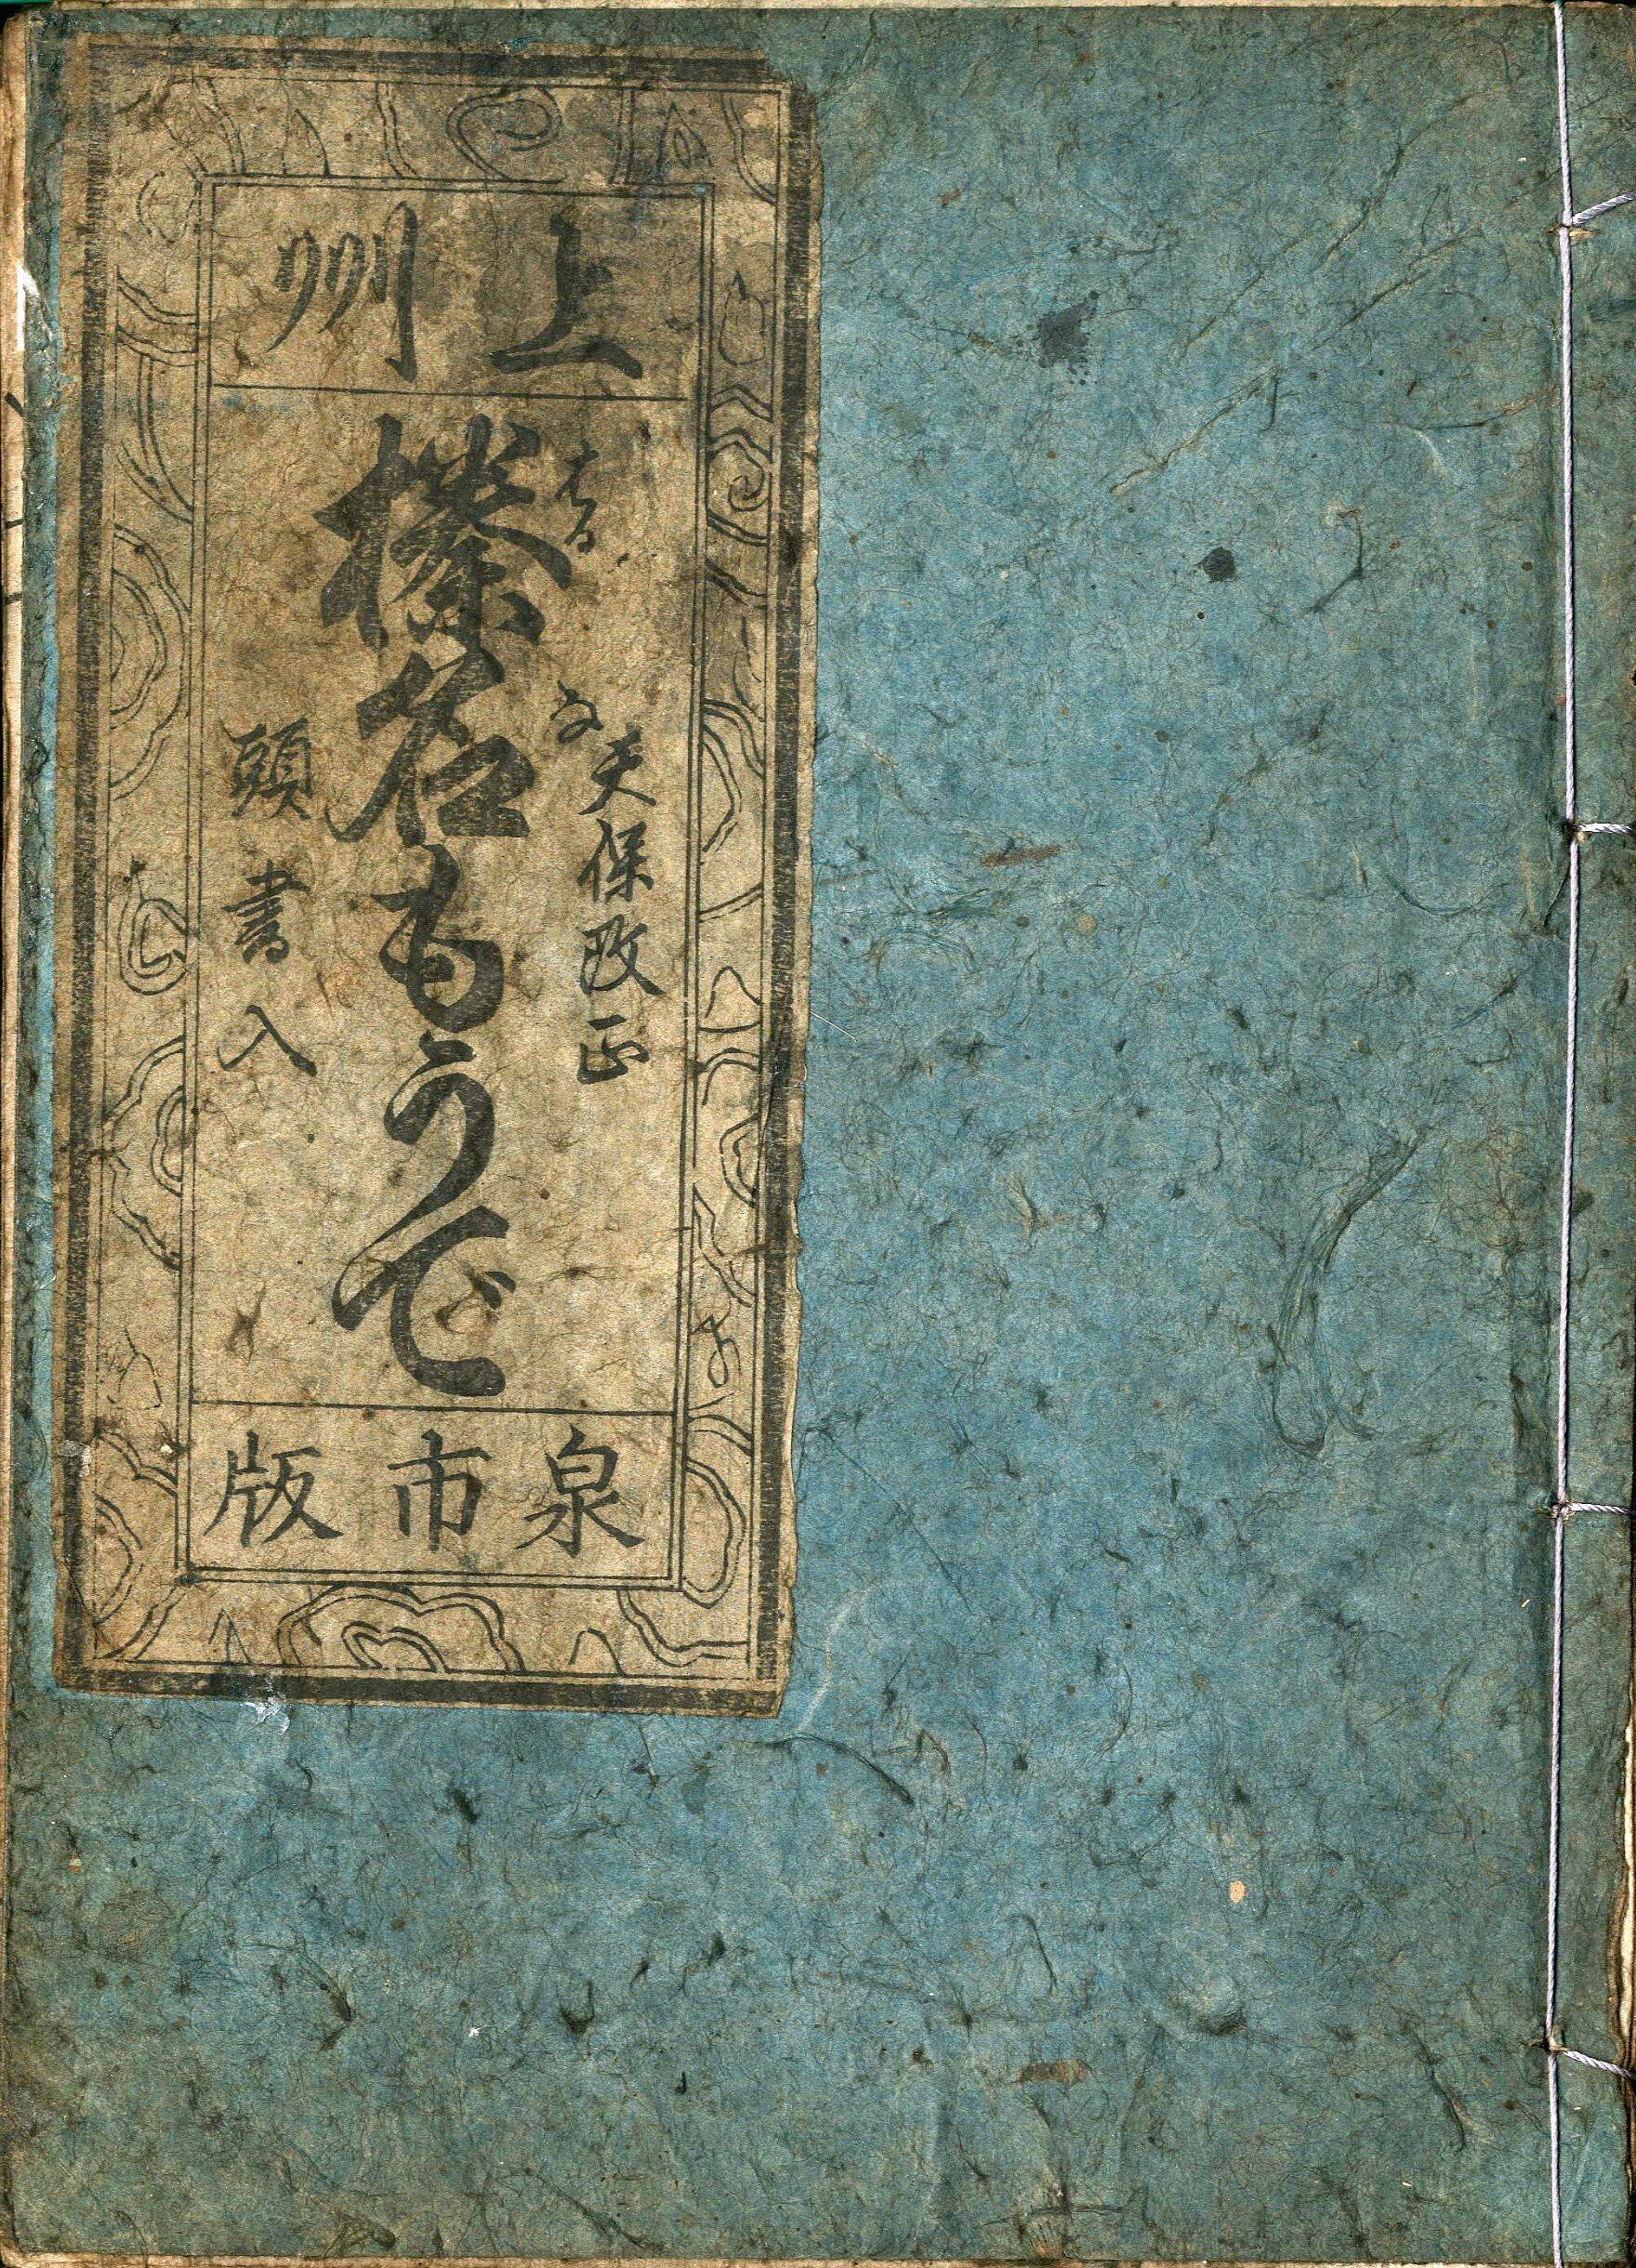 上州
榛名もうで
はる
な
天保改正
頭書入
泉市版